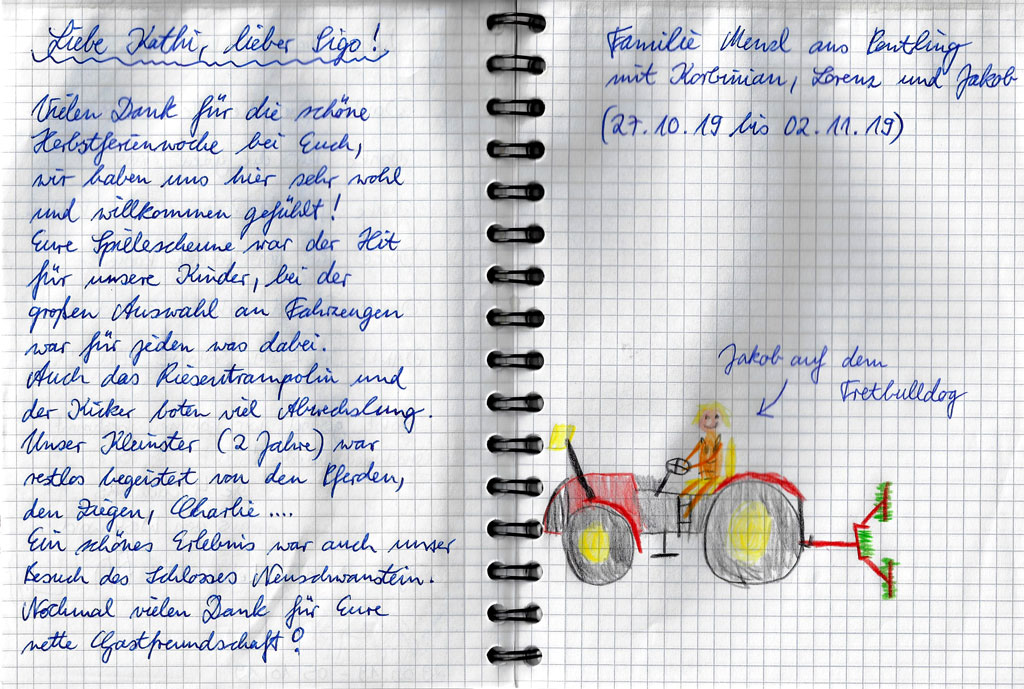 Liebe Kathi, lieber Sigo!
Vielen Dank für die schöne
Herbstferienwoche bei Euch,
wir haben uns hier sehr wohl
und willkommen gefühlt!
Eure Spielescheune war der Hit
für unsere Kinder, bei der
großen Auswahl an Fahrzeugen
war für jeden was dabei.
Auch das Riesentrampolin und
der Kicker boten viel Abwechslung.
Unser Kleinster (2 Jahre) war
restlos begeistert von den Pferden,
den Ziegen, Charlie ....
Ein schönes Erlebnis war auch unser
Besuch des Schlosses Neuschwanstein.
Nochmal vielen Dank für Eure
nette Gastfreundschaft!
Familie Mensl aus Pentling
mit Korbinian, Lorenz und Jakob
(27.10.19 bis 02.11.19)
Jakob auf dem
Tretbulldog